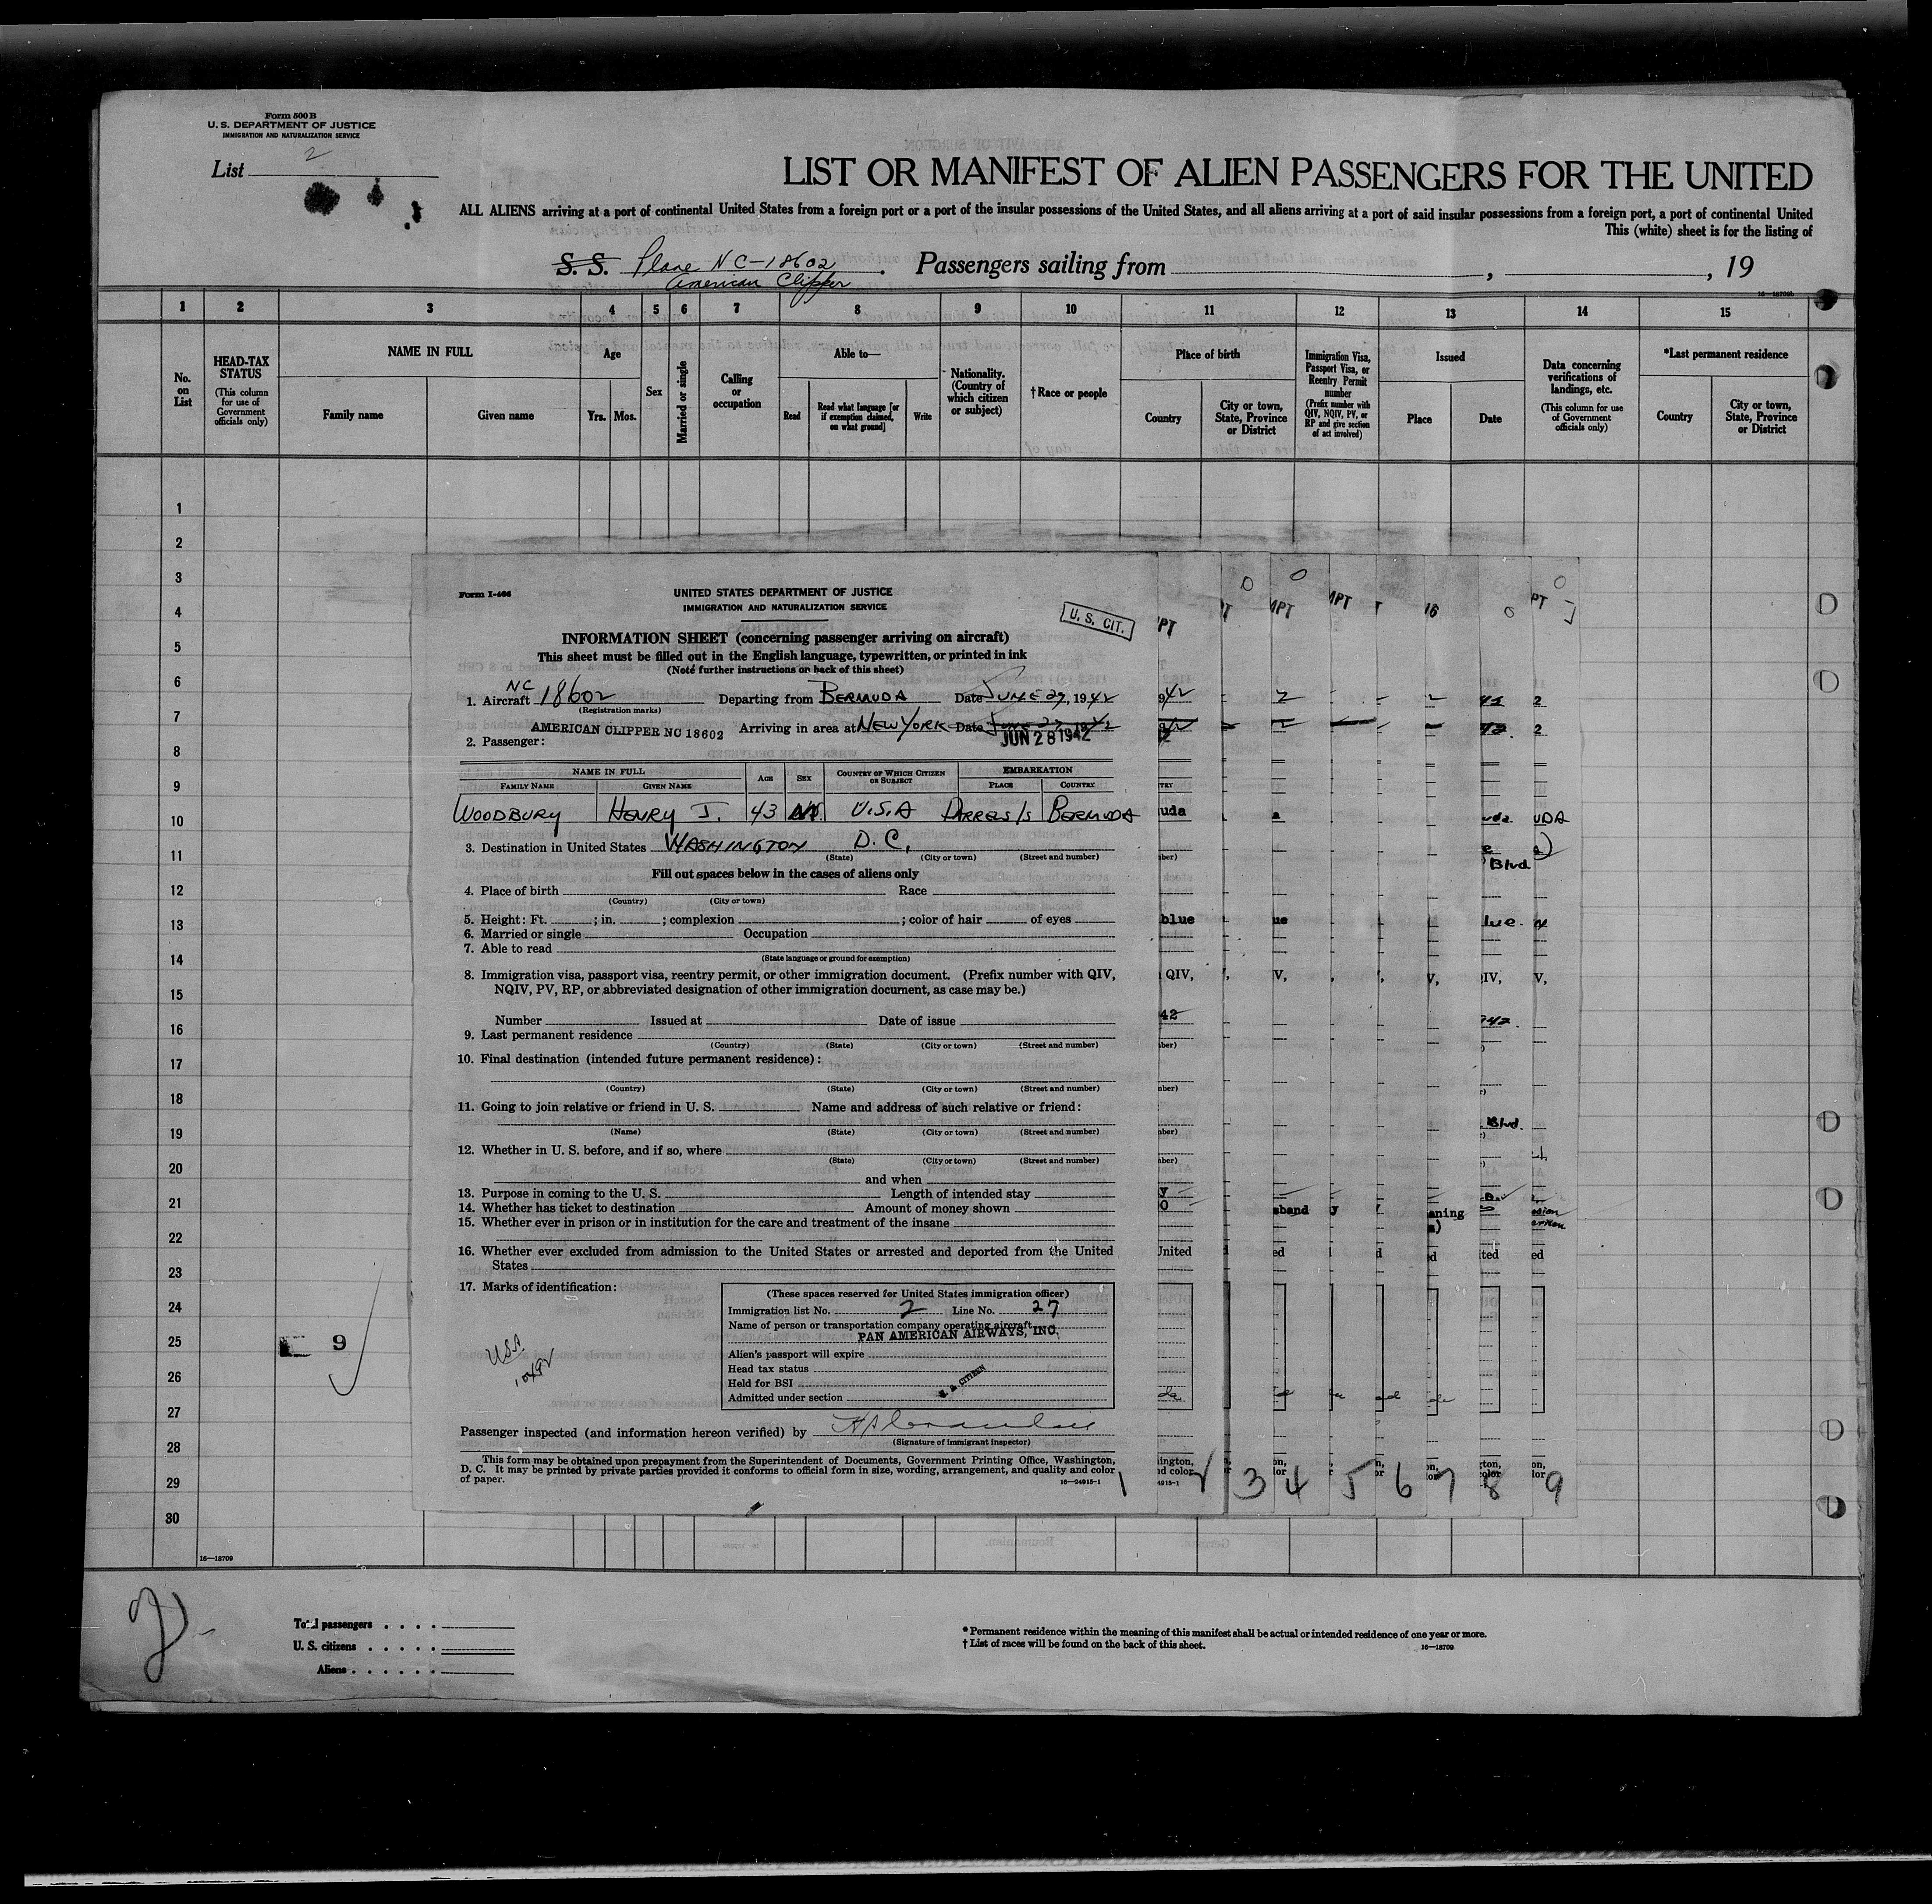 Form 500 B
U. S. DEPARTMENT OF JUSTICE
IMMIGRATION AND NATURALIZATION SERVICE
List 2
LIST OR MANIFEST OF ALIEN PASSENGERS FOR THE UNITED
ALL ALIENS arriving at a port of continental United States from a foreign port or a port of the insular possessions of the United States, and all aliens arriving at a port of said insular possessions from a foreign port, a port of continental United
This (white) sheet is for the listing of
S. S. Plane NC-18602. Passengers sailing from , , 19
American Clipper
16—18709b
1 2 3 4 5 6 7 8 9 10 11 12 13 14 15
No. on List
HEAD-TAX STATUS
(This column for use of Government officials only)
NAME IN FULL
Family name
Given name
Age
Yrs. Mos.
Sex
Married or single
Calling or occupation
Able to—
Read
Read what language [or if exemption claimed, on what ground]
Write
Nationality. (Country of which citizen or subject)
† Race or people
Place of birth
Country
City or town, State, Province or District
Immigration Visa, Passport Visa, or Reentry Permit number
(Prefix number with QIV, NQIV, PV, or RP and give section of act involved)
Issued
Place
Date
Data concerning verifications of landings, etc.
(This column for use of Government officials only)
*Last permanent residence
Country
City or town, State, Province or District
1
2
3
4
5
6
7
8
9
10
11
12
13
14
15
16
17
18
19
20
21
22
23
24
25
26
27
28
29
30
9
16—18709
Form I-466
UNITED STATES DEPARTMENT OF JUSTICE
IMMIGRATION AND NATURALIZATION SERVICE
U. S. CIT.
INFORMATION SHEET (concerning passenger arriving on aircraft)
This sheet must be filled out in the English language, typewritten, or printed in ink
(Note further instructions on back of this sheet)
1. Aircraft NC 18602 Departing from BERMUDA Date JUNE 27, 1942
(Registration marks)
AMERICAN CLIPPER NC 18602 Arriving in area at NEW YORK Date JUNE 27 1942
JUN 28 1942
2. Passenger:
NAME IN FULL
FAMILY NAME GIVEN NAME AGE SEX COUNTRY OF WHICH CITIZEN OR SUBJECT EMBARKATION PLACE COUNTRY
WOODBURY HENRY I. 43 M U.S.A DARRELS Is BERMUDA
3. Destination in United States WASHINGTON D.C.
(State) (City or town) (Street and number)
Fill out spaces below in the cases of aliens only
4. Place of birth Race
(Country) (City or town)
5. Height: Ft. ; in. ; complexion ; color of hair of eyes
6. Married or single Occupation
7. Able to read
(State language or ground for exemption)
8. Immigration visa, passport visa, reentry permit, or other immigration document. (Prefix number with QIV,
NQIV, PV, RP, or abbreviated designation of other immigration document, as case may be.)
Number Issued at Date of issue
9. Last permanent residence
(Country) (State) (City or town) (Street and number)
10. Final destination (intended future permanent residence):
(Country) (State) (City or town) (Street and number)
11. Going to join relative or friend in U. S. Name and address of such relative or friend:
(Name) (State) (City or town) (Street and number)
12. Whether in U. S. before, and if so, where
(State) (City or town) (Street and number)
and when
13. Purpose in coming to the U. S. Length of intended stay
14. Whether has ticket to destination Amount of money shown
15. Whether ever in prison or in institution for the care and treatment of the insane
16. Whether ever excluded from admission to the United States or arrested and deported from the United
States
17. Marks of identification:
(These spaces reserved for United States immigration officer)
Immigration list No. 2 Line No. 27
Name of person or transportation company operating aircraft
PAN AMERICAN AIRWAYS, INC.
Alien's passport will expire
Head tax status
Held for BSI
Admitted under section
U. S. CITIZEN
USA
Passenger inspected (and information hereon verified) by
(Signature of immigrant inspector)
This form may be obtained upon prepayment from the Superintendent of Documents, Government Printing Office, Washington,
D. C. It may be printed by private parties provided it conforms to official form in size, wording, arrangement, and quality and color
of paper.
16—24915-1
1 2 3 4 5 6 7 8 9
Total passengers
U. S. citizens
Aliens
* Permanent residence within the meaning of this manifest shall be actual or intended residence of one year or more.
† List of races will be found on the back of this sheet.
16—18709